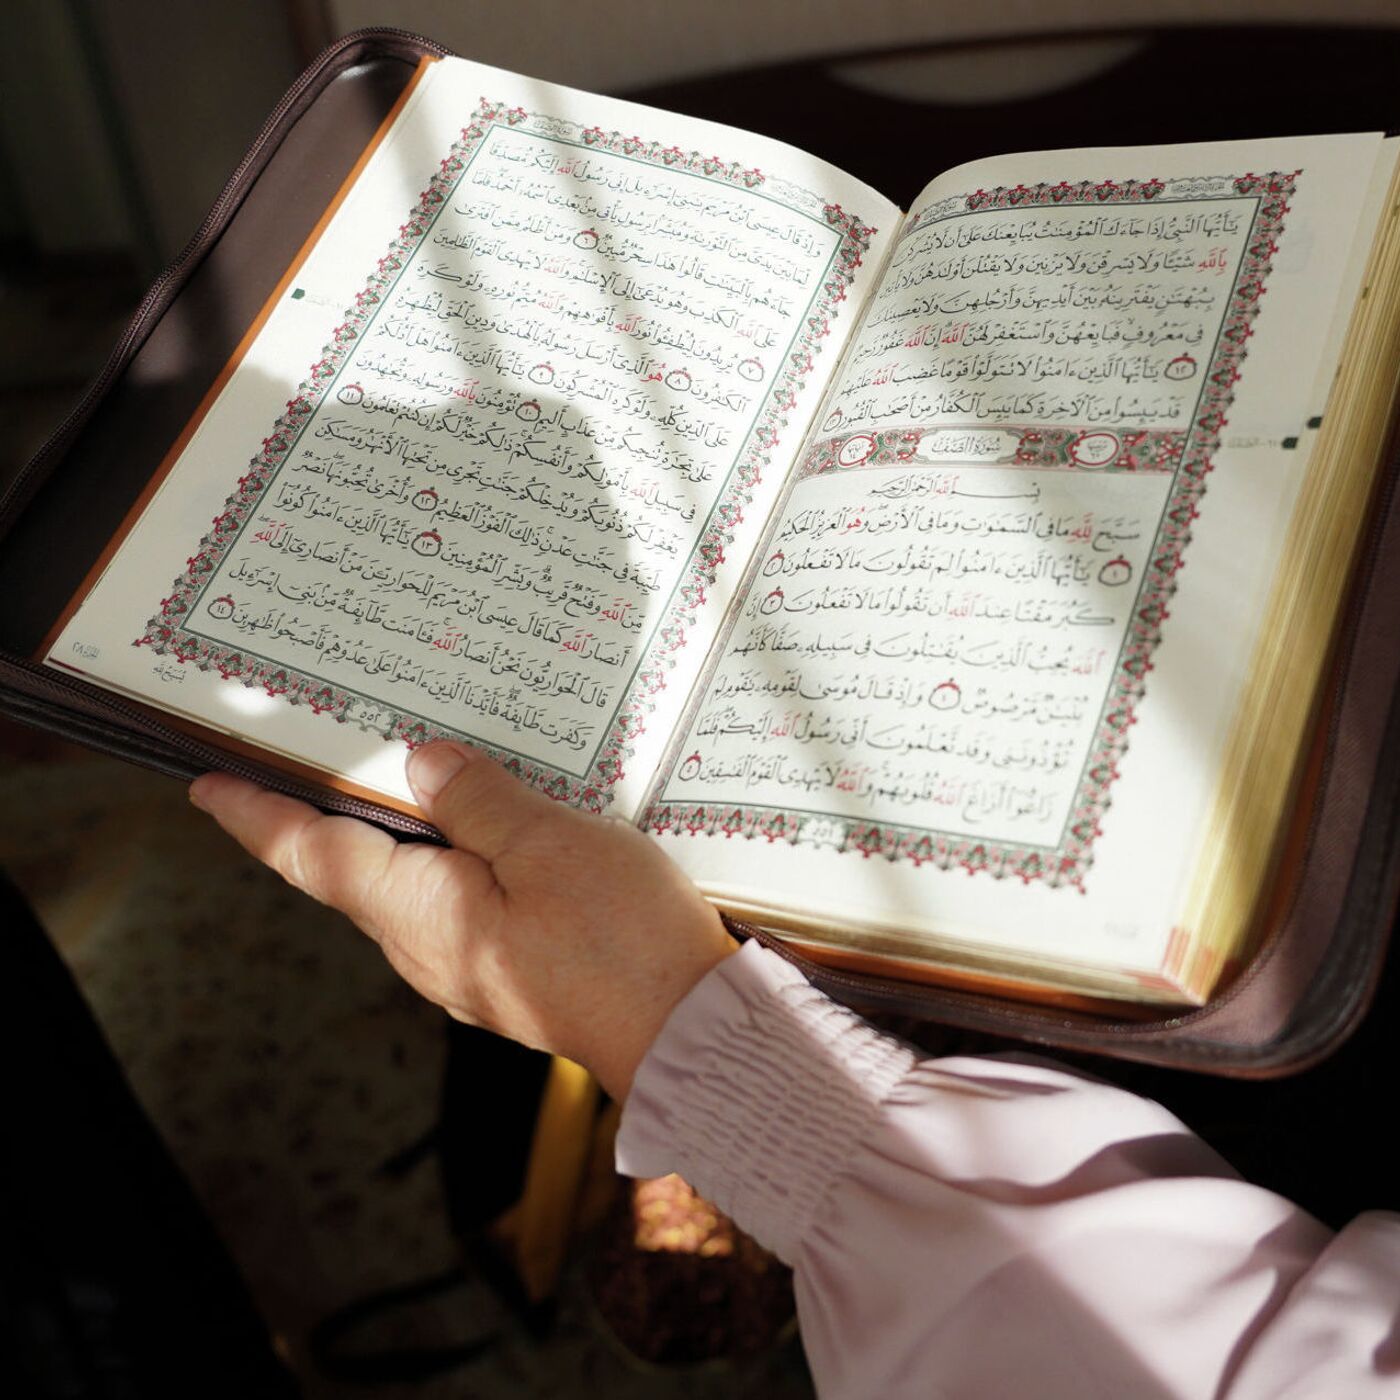 يَـٰٓأَيُّهَا ٱلنَّبِىُّ إِذَا جَآءَكَ ٱلْمُؤْمِنَـٰتُ يُبَايِعْنَكَ عَلَىٰٓ أَن لَّا يُشْرِكْنَ
بِٱللَّهِ شَيْـًٔا وَلَا يَسْرِقْنَ وَلَا يَزْنِينَ وَلَا يَقْتُلْنَ أَوْلَـٰدَهُنَّ وَلَا يَأْتِينَ
بِبُهْتَـٰنٍ يَفْتَرِينَهُۥ بَيْنَ أَيْدِيهِنَّ وَأَرْجُلِهِنَّ وَلَا يَعْصِينَكَ
فِى مَعْرُوفٍ فَبَايِعْهُنَّ وَٱسْتَغْفِرْ لَهُنَّ ٱللَّهَ إِنَّ ٱللَّهَ غَفُورٌ رَّحِيمٌ
١٢ يَـٰٓأَيُّهَا ٱلَّذِينَ ءَامَنُوا۟ لَا تَتَوَلَّوْا۟ قَوْمًا غَضِبَ ٱللَّهُ عَلَيْهِمْ
قَدْ يَئِسُوا۟ مِنَ ٱلْـَٔاخِرَةِ كَمَا يَئِسَ ٱلْكُفَّارُ مِنْ أَصْحَـٰبِ ٱلْقُبُورِ ١٣
سُورَةُ ٱلصَّفِّ
بِسْمِ ٱللَّهِ ٱلرَّحْمَـٰنِ ٱلرَّحِيمِ
سَبَّحَ لِلَّهِ مَا فِى ٱلسَّمَـٰوَٰتِ وَمَا فِى ٱلْأَرْضِ وَهُوَ ٱلْعَزِيزُ ٱلْحَكِيمُ
١ يَـٰٓأَيُّهَا ٱلَّذِينَ ءَامَنُوا۟ لِمَ تَقُولُونَ مَا لَا تَفْعَلُونَ ٢
كَبُرَ مَقْتًا عِندَ ٱللَّهِ أَن تَقُولُوا۟ مَا لَا تَفْعَلُونَ ٣ إِنَّ
ٱللَّهَ يُحِبُّ ٱلَّذِينَ يُقَـٰتِلُونَ فِى سَبِيلِهِۦ صَفًّا كَأَنَّهُم
بُنْيَـٰنٌ مَّرْصُوصٌ ٤ وَإِذْ قَالَ مُوسَىٰ لِقَوْمِهِۦ يَـٰقَوْمِ لِمَ
تُؤْذُونَنِى وَقَد تَّعْلَمُونَ أَنِّى رَسُولُ ٱللَّهِ إِلَيْكُمْ فَلَمَّا
زَاغُوٓا۟ أَزَاغَ ٱللَّهُ قُلُوبَهُمْ وَٱللَّهُ لَا يَهْدِى ٱلْقَوْمَ ٱلْفَـٰسِقِينَ ٥
٥٥١
وَإِذْ قَالَ عِيسَى ٱبْنُ مَرْيَمَ يَـٰبَنِىٓ إِسْرَٰٓءِيلَ إِنِّى رَسُولُ ٱللَّهِ إِلَيْكُم مُّصَدِّقًا
لِّمَا بَيْنَ يَدَىَّ مِنَ ٱلتَّوْرَىٰةِ وَمُبَشِّرًۢا بِرَسُولٍ يَأْتِى مِنۢ بَعْدِى ٱسْمُهُۥٓ أَحْمَدُ فَلَمَّا
جَآءَهُم بِٱلْبَيِّنَـٰتِ قَالُوا۟ هَـٰذَا سِحْرٌ مُّبِينٌ ٦ وَمَنْ أَظْلَمُ مِمَّنِ ٱفْتَرَىٰ
عَلَى ٱللَّهِ ٱلْكَذِبَ وَهُوَ يُدْعَىٰٓ إِلَى ٱلْإِسْلَـٰمِ وَٱللَّهُ لَا يَهْدِى ٱلْقَوْمَ ٱلظَّـٰلِمِينَ
٧ يُرِيدُونَ لِيُطْفِـُٔوا۟ نُورَ ٱللَّهِ بِأَفْوَٰهِهِمْ وَٱللَّهُ مُتِمُّ نُورِهِۦ وَلَوْ كَرِهَ
ٱلْكَـٰفِرُونَ ٨ هُوَ ٱلَّذِىٓ أَرْسَلَ رَسُولَهُۥ بِٱلْهُدَىٰ وَدِينِ ٱلْحَقِّ لِيُظْهِرَهُۥ
عَلَى ٱلدِّينِ كُلِّهِۦ وَلَوْ كَرِهَ ٱلْمُشْرِكُونَ ٩ يَـٰٓأَيُّهَا ٱلَّذِينَ ءَامَنُوا۟ هَلْ أَدُلُّكُمْ
عَلَىٰ تِجَـٰرَةٍ تُنجِيكُم مِّنْ عَذَابٍ أَلِيمٍ ١٠ تُؤْمِنُونَ بِٱللَّهِ وَرَسُولِهِۦ وَتُجَـٰهِدُونَ
فِى سَبِيلِ ٱللَّهِ بِأَمْوَٰلِكُمْ وَأَنفُسِكُمْ ذَٰلِكُمْ خَيْرٌ لَّكُمْ إِن كُنتُمْ تَعْلَمُونَ ١١
يَغْفِرْ لَكُمْ ذُنُوبَكُمْ وَيُدْخِلْكُمْ جَنَّـٰتٍ تَجْرِى مِن تَحْتِهَا ٱلْأَنْهَـٰرُ وَمَسَـٰكِنَ
طَيِّبَةً فِى جَنَّـٰتِ عَدْنٍ ذَٰلِكَ ٱلْفَوْزُ ٱلْعَظِيمُ ١٢ وَأُخْرَىٰ تُحِبُّونَهَا نَصْرٌ
مِّنَ ٱللَّهِ وَفَتْحٌ قَرِيبٌ وَبَشِّرِ ٱلْمُؤْمِنِينَ ١٣ يَـٰٓأَيُّهَا ٱلَّذِينَ ءَامَنُوا۟ كُونُوٓا۟
أَنصَارَ ٱللَّهِ كَمَا قَالَ عِيسَى ٱبْنُ مَرْيَمَ لِلْحَوَارِيِّـۧنَ مَنْ أَنصَارِىٓ إِلَى ٱللَّهِ
قَالَ ٱلْحَوَارِيُّونَ نَحْنُ أَنصَارُ ٱللَّهِ فَـَٔامَنَت طَّآئِفَةٌ مِّنۢ بَنِىٓ إِسْرَٰٓءِيلَ
وَكَفَرَت طَّآئِفَةٌ فَأَيَّدْنَا ٱلَّذِينَ ءَامَنُوا۟ عَلَىٰ عَدُوِّهِمْ فَأَصْبَحُوا۟ ظَـٰهِرِينَ ١٤
٥٥٢
يُسَبِّحُ لِلَّهِ
الجزء ٢٨